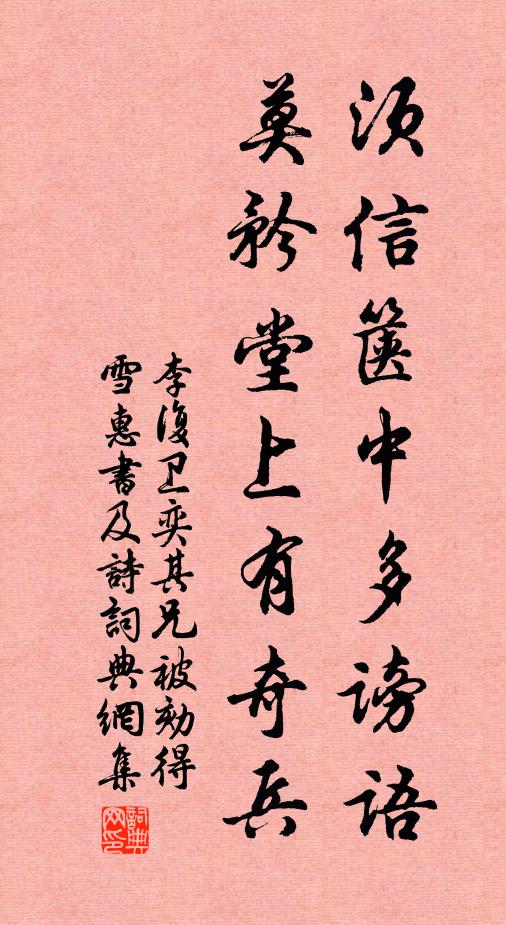 须信箧中多谤语
莫矜堂上有奇兵
李復卫奕其兄被劾得
雪惠書及詩詞典網集
詞典网印